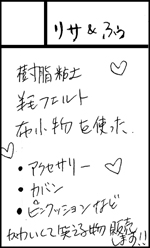 リサ&ふう
樹脂粘土
羊毛フェルト
布小物を使った
・アクセサリー
・カバン
・ピンクッションなど
かわいくて笑える物販売
します!!